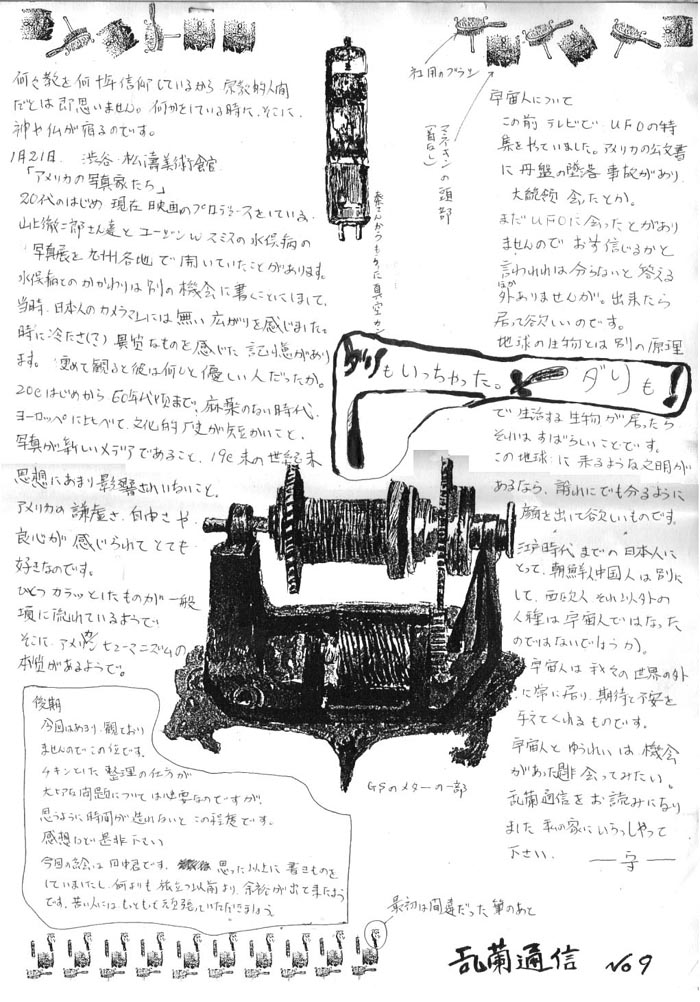 何々教を何十年信仰しているから宗教的人間
だとは即思いません。何かをしている時に、そこに
神や仏が宿るのです。
1月21日. 渋谷・松濤美術館
「アメリカの写真家たち」
20代のはじめ 現在 映画のプロデュースをしている、
山上徹二郎さん達と ユージン W スミスの水俣病の
写真展を九州各地で開いていたことがあります。
水俣病とのかかわりは別の機会に書くことにして、
当時、日本人のカメラマンには無い広がりを感じました。
時に冷たさ(?) 異質なものを感じた記憶があり
ます。 改めて観ると彼は何と優しい人だったか。
20cはじめから 60年代頃まで、麻薬のない時代、
ヨーロッパに比べて、文化的歴史が短かいこと、
写真が新しいメディアであること、19c末の世紀末
思想にあまり影響されていないこと。
アメリカの謙虚さ、自由さや、
良心が感じられてとても
好きなのです。
ひとつカラッとしたものが一般
項に流れているようで
そこに、アメリカン ヒューマニズムの
本質があるようで。
社用のブラシ
マネキンの頭部
(首なし)
さんからもらった真空カン
宇宙人について
この前 テレビで UFOの特
集をやっていました。アメリカの公文書
に円盤の墜落事故があり、
大統領 会ったとか。
まだUFOに会ったことがあり
ませんので お前信じるかと
言われれば分らないと答える
ほか
外ありませんが。出来たら
居って欲しいのです。
地球の生物とは別の原理
もいっちゃった。 ダリも!
で生活する生物が居ったら
それはすばらしいことです。
この地球に来るような文明が
あるなら、誰れにでも分るように
顔を出して欲しいものです。
江戸時代までの日本人に
とって、朝鮮人中国人は別に
して、西欧人それ以外の
人種は宇宙人ではなった
のではないでしょうか。
宇宙人は我々の世界の外
に常に居り、期待と不安を
与えてくれるものです。
宇宙人とゆうれいは機会
があった是非会ってみたい。
乱蘭通信をお読みになり
ました 私の家にいらっしやって
下さい. ―守―
GSのメーターの一部
後期
今回はあまり、観ており
ませんのでこの位です。
チャンとした整理の仕方が
大切な問題については必要なのですが、
思うように時間が造れないと この程度です。
感想など是非下さい
今回の絵は田中君です。 思った以上に 書きものを
していましたし、何よりも旅立つ以前より、余裕が出て来たよう
です。若い人にはもっともっと頑張っていただきましょう
最初は間違だった筆のあと
乱蘭通信 No9